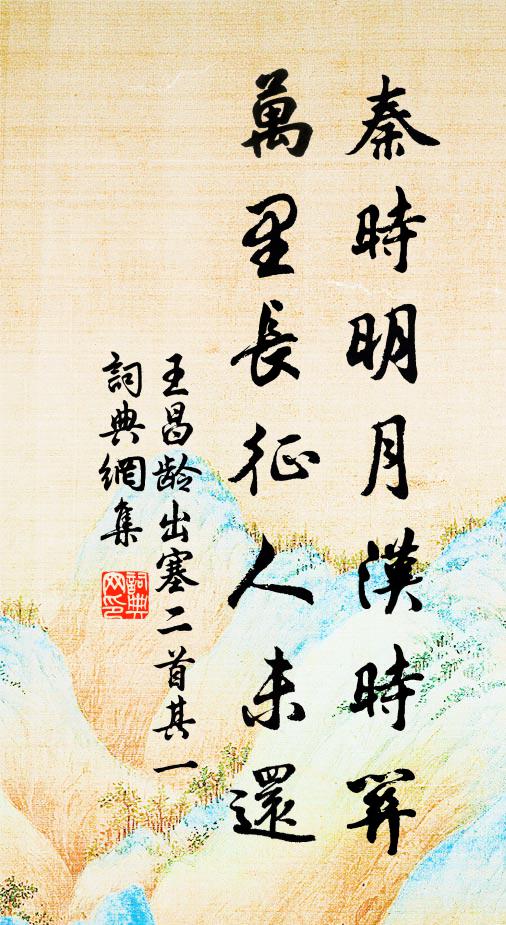 秦時明月漢時関
萬里長征人未還
王昌龄出塞二首其一
詞典網集
詞典网印